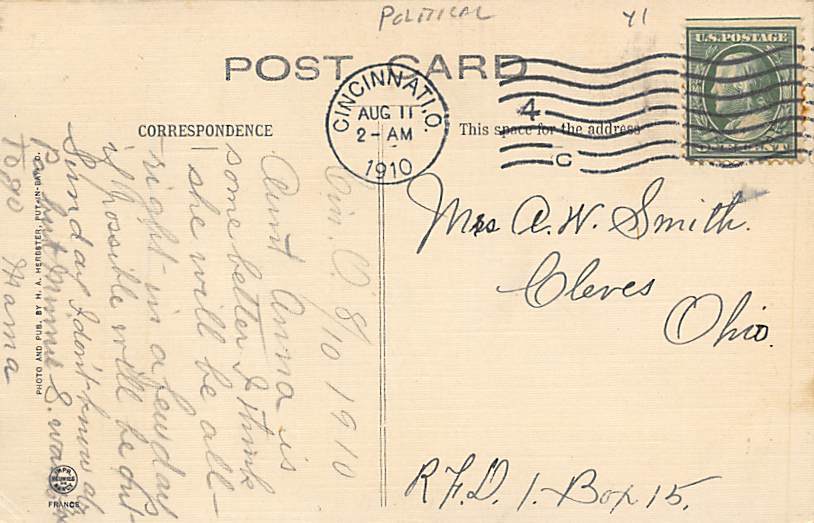 POLITICAL
41
POST CARD
U.S. POSTAGE
CINCINNATI, O.
AUG 11
2-AM
1910
4
C
CORRESPONDENCE
This space for the address
Cin. O. 8/10 1910
Aunt Anna is
some better I think
she will be all-
right - in a few days
if possible will be out-
Sunday I don't know
Pa but Minnie S.
to go Mama
Mrs A. W. Smith.
Cleves
Ohio.
R.F.D. 1. Box 15.
PHOTO AND PUB. BY H. A. HERBSTER, PUT-IN-BAY, O.
FRANCE